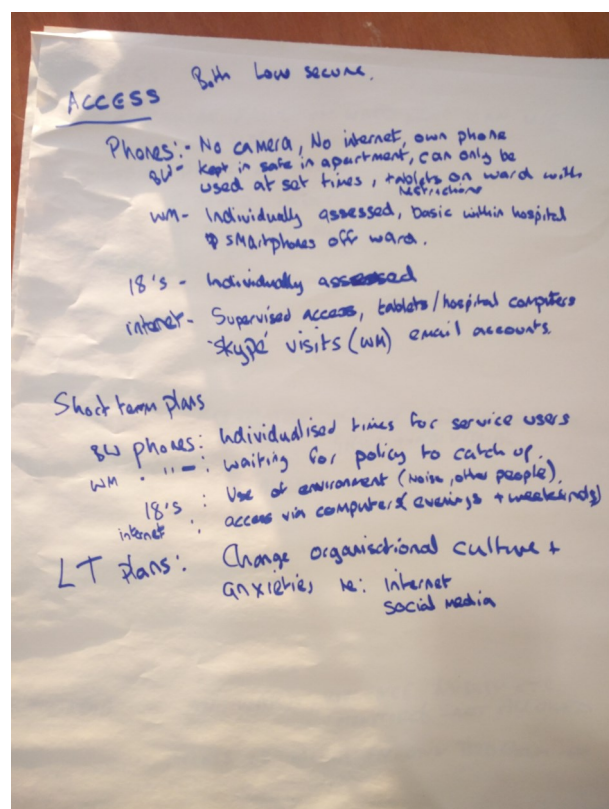 Both Low secure.
ACCESS
Phones:- No camera, No internet, own phone
BW- kept in safe in apartment, can only be
used at set times, tablets on ward with
restrictions
WM- Individually assessed, basic within hospital
smartphones off ward.
18's - Individually assessed
internet- Supervised access, tablets/hospital computers
'Skype' visits (WM) email accounts.
Short term plans
BW phones: Individualised times for service users
WM " - : waiting for policy to catch up.
18's : Use of environment (Noise, other people).
internet : access via computers (evenings + weekends)
LT plans: Change organisctional culture +
anxieties re: internet
social media